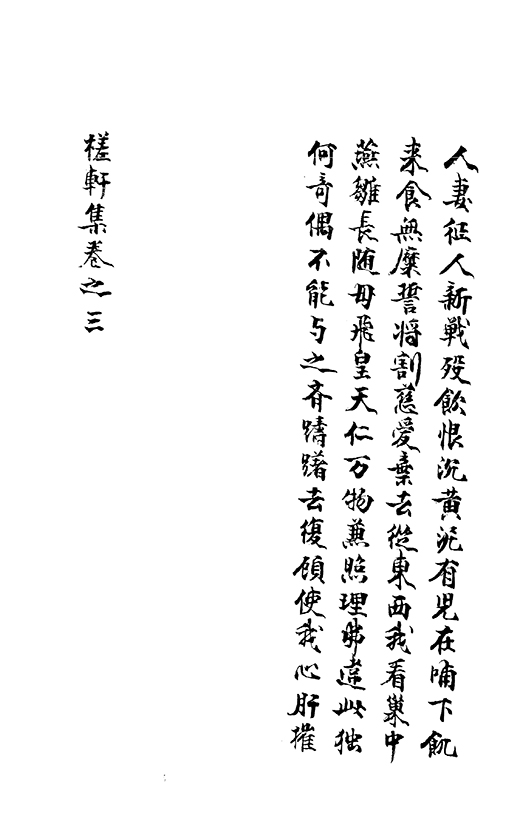 人妻征人新戰殁飲恨沉黄泥有児在哺下飢
来食無糜誓将割慈愛棄去從東西我看巢中
燕雛長随母飛皇天仁万物蕙照理弗違此独
何奇偶不能与之齐躊躇去復顧使我心肝摧
槎軒集卷之三